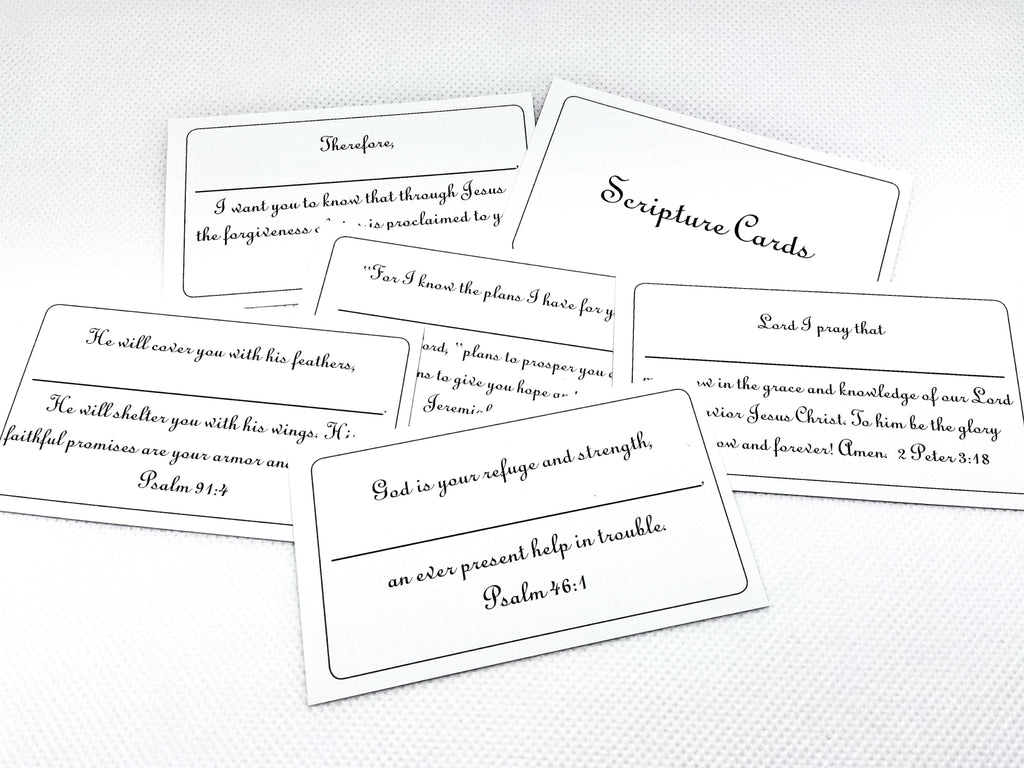 Therefore,
I want you to know that through Jesus
the forgiveness is proclaimed to
Scripture Cards
"For I know the plans I have for
"plans to prosper you
to give you hope
He will cover you with his feathers,
He will shelter you with his wings.
faithful promises are your armor
Psalm 91:4
Lord I pray that
in the grace and knowledge of our Lord
Jesus Christ. To him be the glory
and forever! Amen. 2 Peter 3:18
God is your refuge and strength,
an ever present help in trouble.
Psalm 46:1